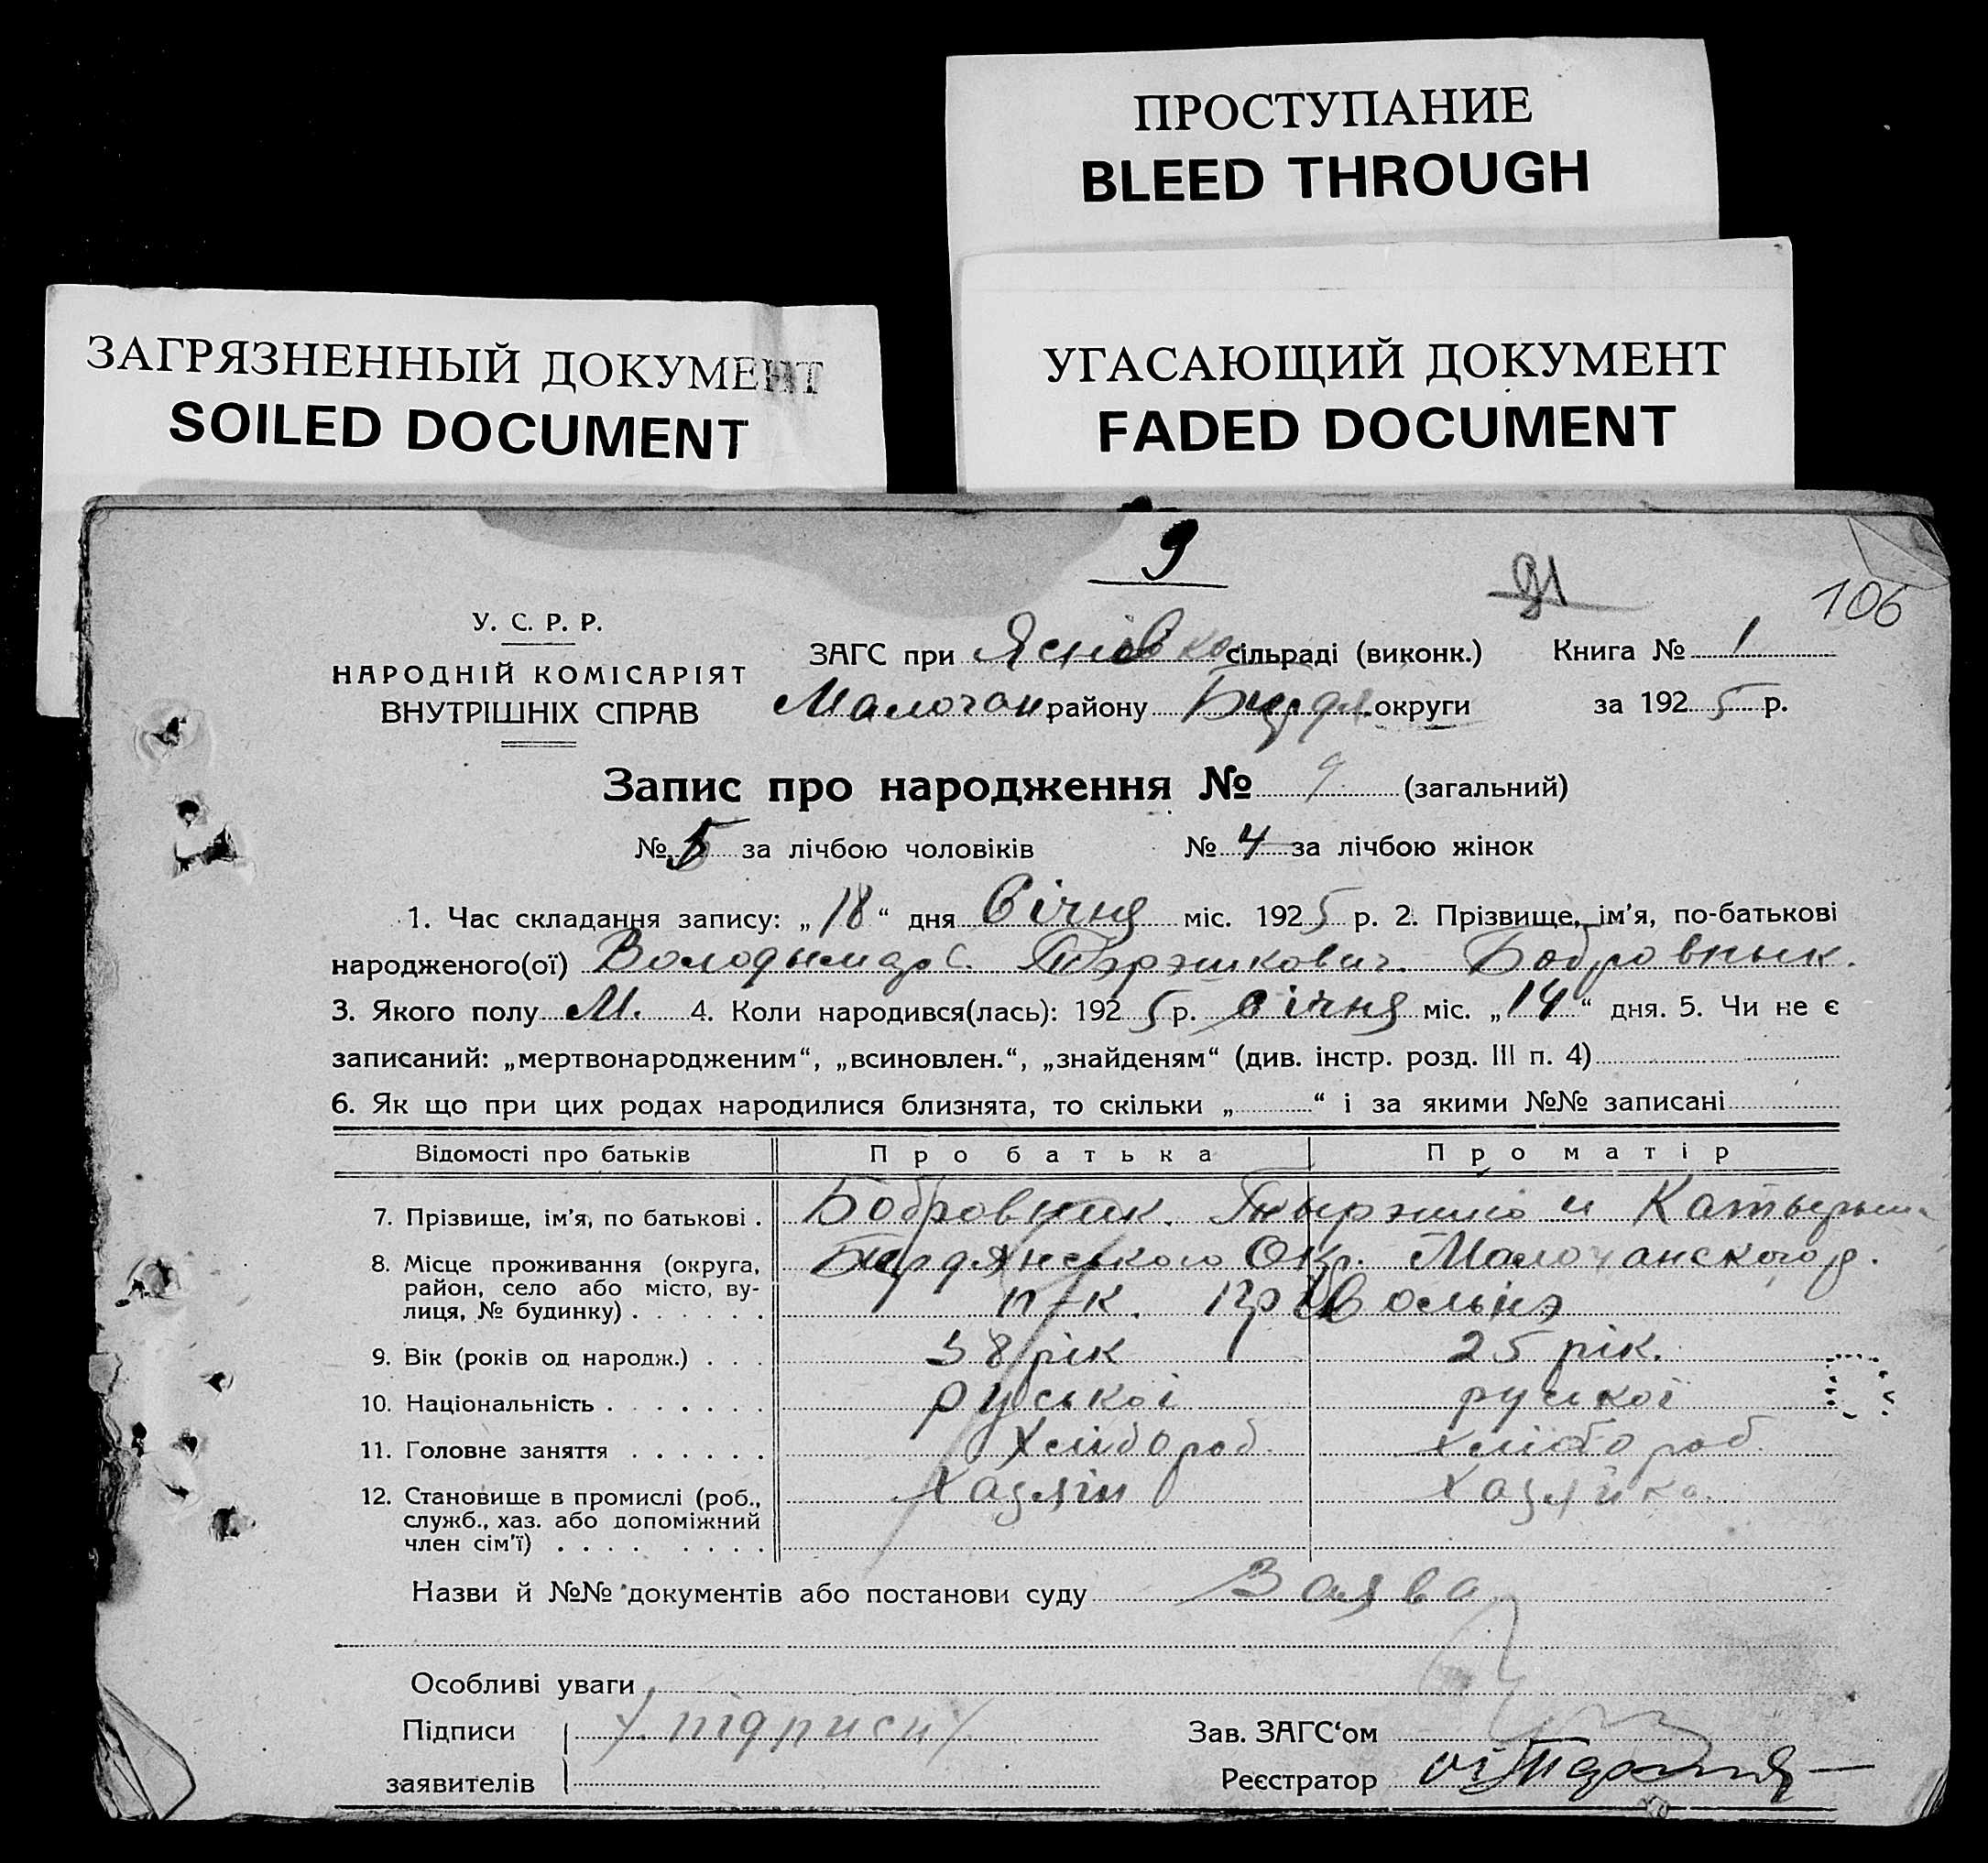 ПРОСТУПАНИЕ
BLEED THROUGH
ЗАГРЯЗНЕННЫЙ ДОКУМЕНТ
SOILED DOCUMENT
УГАСАЮЩИЙ ДОКУМЕНТ
FADED DOCUMENT
9
91
106
У. С. Р. Р.
НАРОДНІЙ КОМІСАРІЯТ
ВНУТРІШНІХ СПРАВ
ЗАГС при сільраді (виконк.) Книга № 1
Малочан району Бердя округи за 1925 р.
Запис про народження № 9 (загальний)
№ 5 за лічбою чоловіків № 4 за лічбою жінок
1. Час складання запису: „18“ дня Січня міс. 1925 р. 2. Прізвище, ім’я, по-батькові
народженого(ої) Бобровнык.
3. Якого полу М. 4. Коли народився(лась): 1925 р. січня міс. „14“ дня. 5. Чи не є
записаний: „мертвонародженим“, „всиновлен.“, „знайденям“ (див. інстр. розд. III п. 4)
6. Як що при цих родах народилися близнята, то скільки „ “ і за якими №№ записані
Відомості про батьків Про батька Про матір
7. Прізвище, ім’я, по батькові . Бобровник. и
8. Місце проживання (округа, Бердянського Окр. Малочанского р.
район, село або місто, ву-
лиця, № будинку) . . . . . .
9. Вік (років од народж.) . . . 38 рік 25 рік.
10. Національність . . . . . . . руської руської
11. Головне заняття . . . . . . Хлібороб. хлібороб.
12. Становище в промислі (роб., Хазяін Хазяйка.
служб., хаз. або допоміжний
член сім’ї) . . . . . . . .
Назви й №№ документів або постанови суду Заява
Особливі уваги
Підписи підписи Зав. ЗАГС‘ом
заявителів Реєстратор